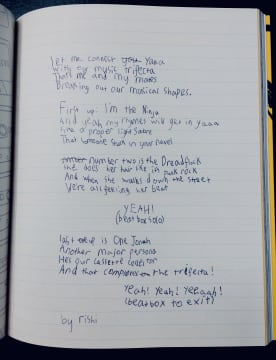 let me connect yaaa
With my mystic trifecta
That's me and my mates
Breaking out our musical shapes.
First up: I'm the Ninja
And yeah my rhymes will get in yaaa
like a proper light sabre
That someone stuck in your navel
number two is the Dreadlock
she does her hair like in punk rock
And when she walks down the street
We're all feeling her beat
YEAH!
(beatbox solo)
last up is One Jonah
Another major persona
He's our cassette
And that completes the trifecta!
Yeah! Yeah! Yeeaah!
(beatbox to exit)
by rishi